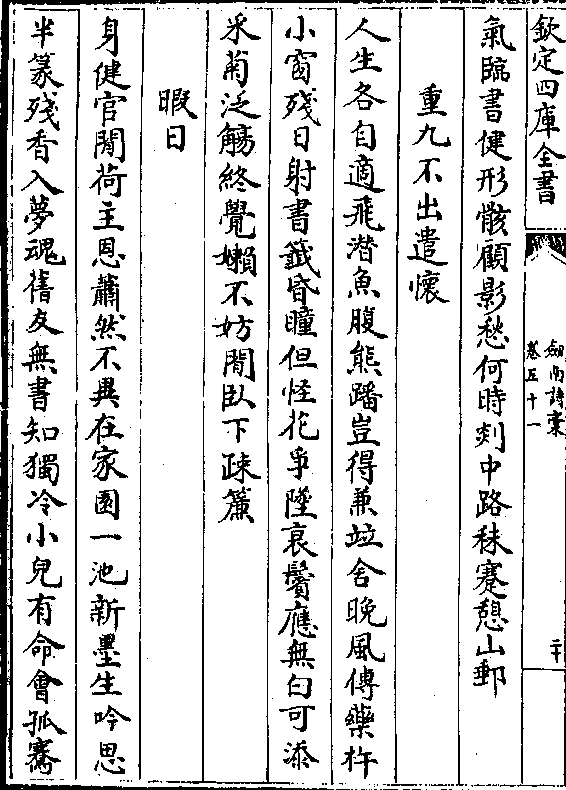 欽定四庫全書
劍南詩稾
卷五十一
二十
氣臨書健形骸顧影愁何時剡中路秣蹇憩山郵
重九不出遣懷
人生各自適飛潛魚腹熊蹯豈得兼竝舍晚風傳藥杵
小窗殘日射書籤昏瞳但怪花爭墜衰鬢應無白可添
采菊泛觴終覺嬾不妨閒臥下疎簾
暇日
身健官閒荷主恩蕭然不異在家園一池新墨生吟思
半篆殘香入夢魂舊友無書知獨冷小兒有命會孤騫